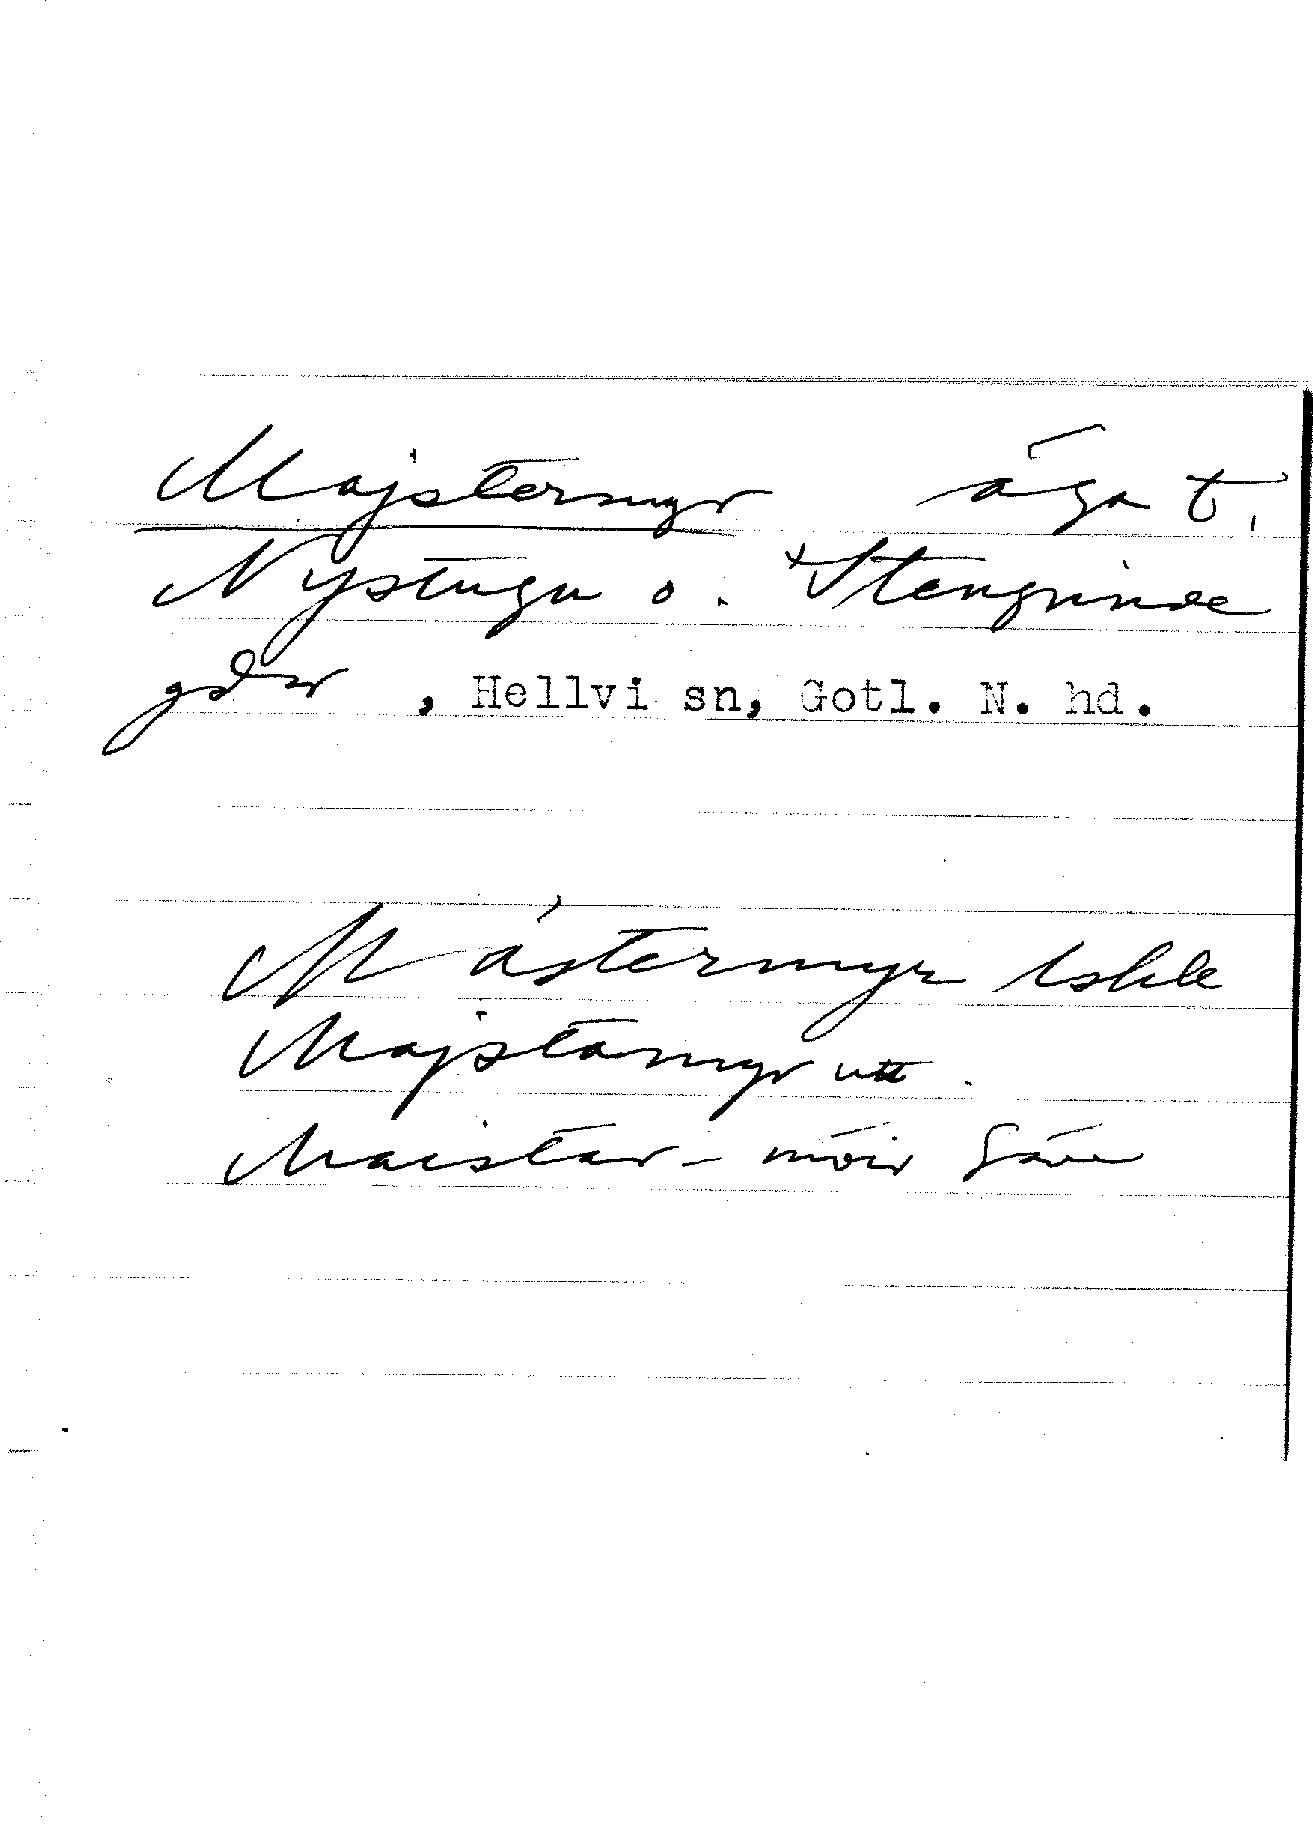 Majstermyr äga t.
Nystugu o. Stengrinde
gdr, Hellvi sn, Gotl. N. hd.
Mästermyr lskle
Majstamyr utt.
Maistar-möir Säve